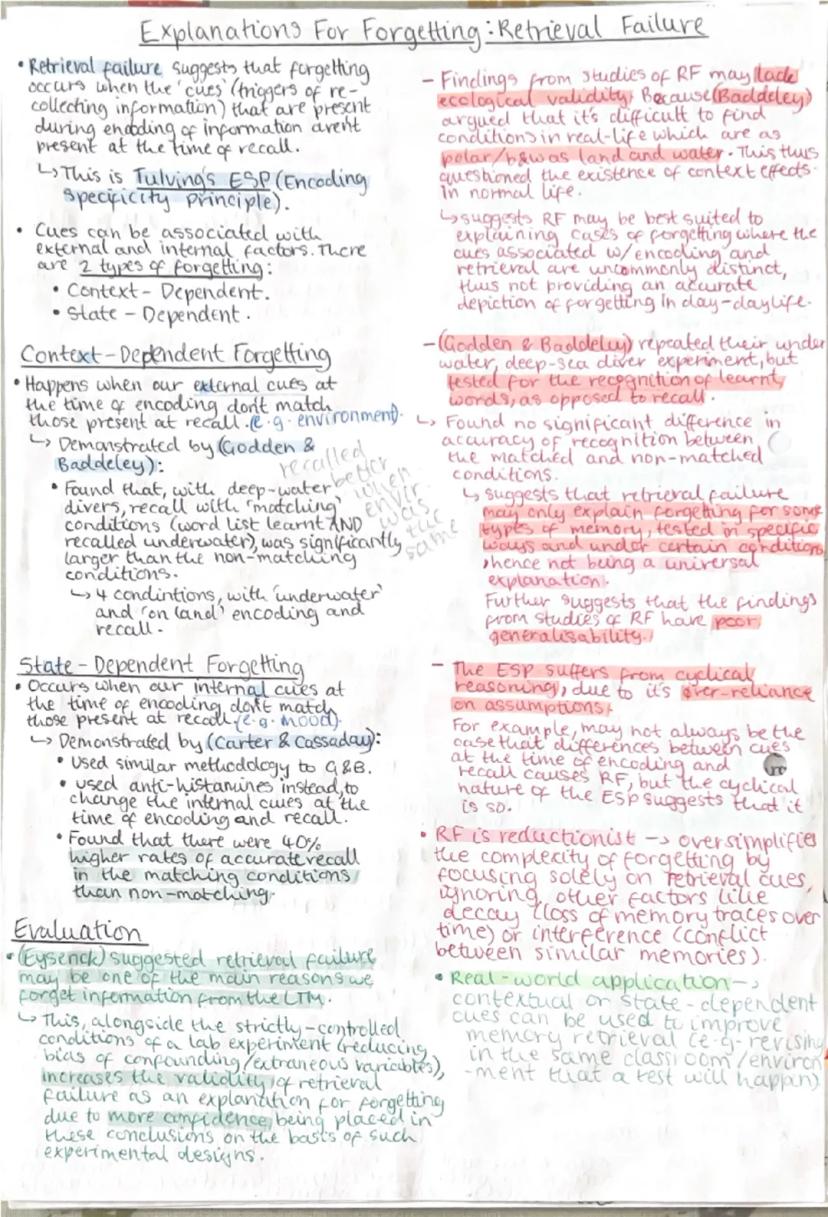 Explanations For Forgetting: Retrieval Failure
• Retrieval failure suggests that forgetting
occurs when the 'cues' (triggers of re-
collecting information) that are present
during encoding of information aren't
present at the time of recall.
↳ This is Tulving's ESP (Encoding
Specificity Principle).
• Cues can be associated with
external and internal factors. There
are 2 types of forgetting:
• Context-Dependent.
• State-Dependent.
Context-Dependent Forgetting
• Happens when our external cues at
the time of encoding don't match
those present at recall.(e.g. environment).
↳ Demonstrated by (Godden &
Baddeley):
• Found that, with deep-water
divers, recall with 'matching'
conditions (word list learnt AND
recalled underwater), was significantly
larger than the non-matching
conditions.
↳ 4 condintions, with 'underwater'
and 'on land' encoding and
recall.
recalled
better
when
envir.
was
the
same
State-Dependent Forgetting
• Occurs when our internal cues at
the time of encoding don't match
those present at recall (e.g. mood).
↳ Demonstrated by (Carter & Cassaday):
• Used similar methodology to G&B.
• used anti-histamines instead, to
change the internal cues at the
time of encoding and recall.
• Found that there were 40%
higher rates of accurate recall
in the matching conditions
than non-matching.
Evaluation
• (Eysenck) suggested retrieval failure
may be one of the main reasons we
forget information from the LTM.
↳ This, alongside the strictly-controlled
conditions of a lab experiment (reducing
bias of confounding/extraneous variables),
increases the validity of retrieval
failure as an explanation for forgetting
due to more confidence being placed in
these conclusions on the basis of such
experimental designs.
– Findings from studies of RF may lack
ecological validity. Because (Baddeley)
argued that it's difficult to find
conditions in real-life which are as
polar/b&w as land and water. This thus
questioned the existence of context effects
in normal life.
↳ suggests RF may be best suited to
explaining cases of forgetting where the
cues associated w/ encoding and
retrieval are uncommonly distinct,
thus not providing an accurate
depiction of forgetting in day-day life.
– (Godden & Baddeley) repeated their under
water, deep-sea diver experiment, but
tested for the recognition of learnt
words, as opposed to recall.
↳ Found no significant difference in
accuracy of recognition between
the matched and non-matched
conditions.
↳ suggests that retrieval failure
may only explain forgetting for some
types of memory, tested in specific
ways and under certain conditions
, hence not being a universal
explanation.
Further suggests that the findings
from studies of RF have poor
generalisability.
– The ESP suffers from cyclical
reasoning, due to it's over-reliance
on assumptions.
For example, may not always be the
case that differences between cues
at the time of encoding and
recall causes RF, but the cyclical
nature of the ESP suggests that it
is so.
• RF is reductionist → oversimplifies
the complexity of forgetting by
focusing solely on retrieval cues,
ignoring other factors like
decay (loss of memory traces over
time) or interference (conflict
between similar memories).
• Real-world application →
contextual or state-dependent
cues can be used to improve
memory retrieval (e.g. revising
in the same classroom/environ
-ment that a test will happen)